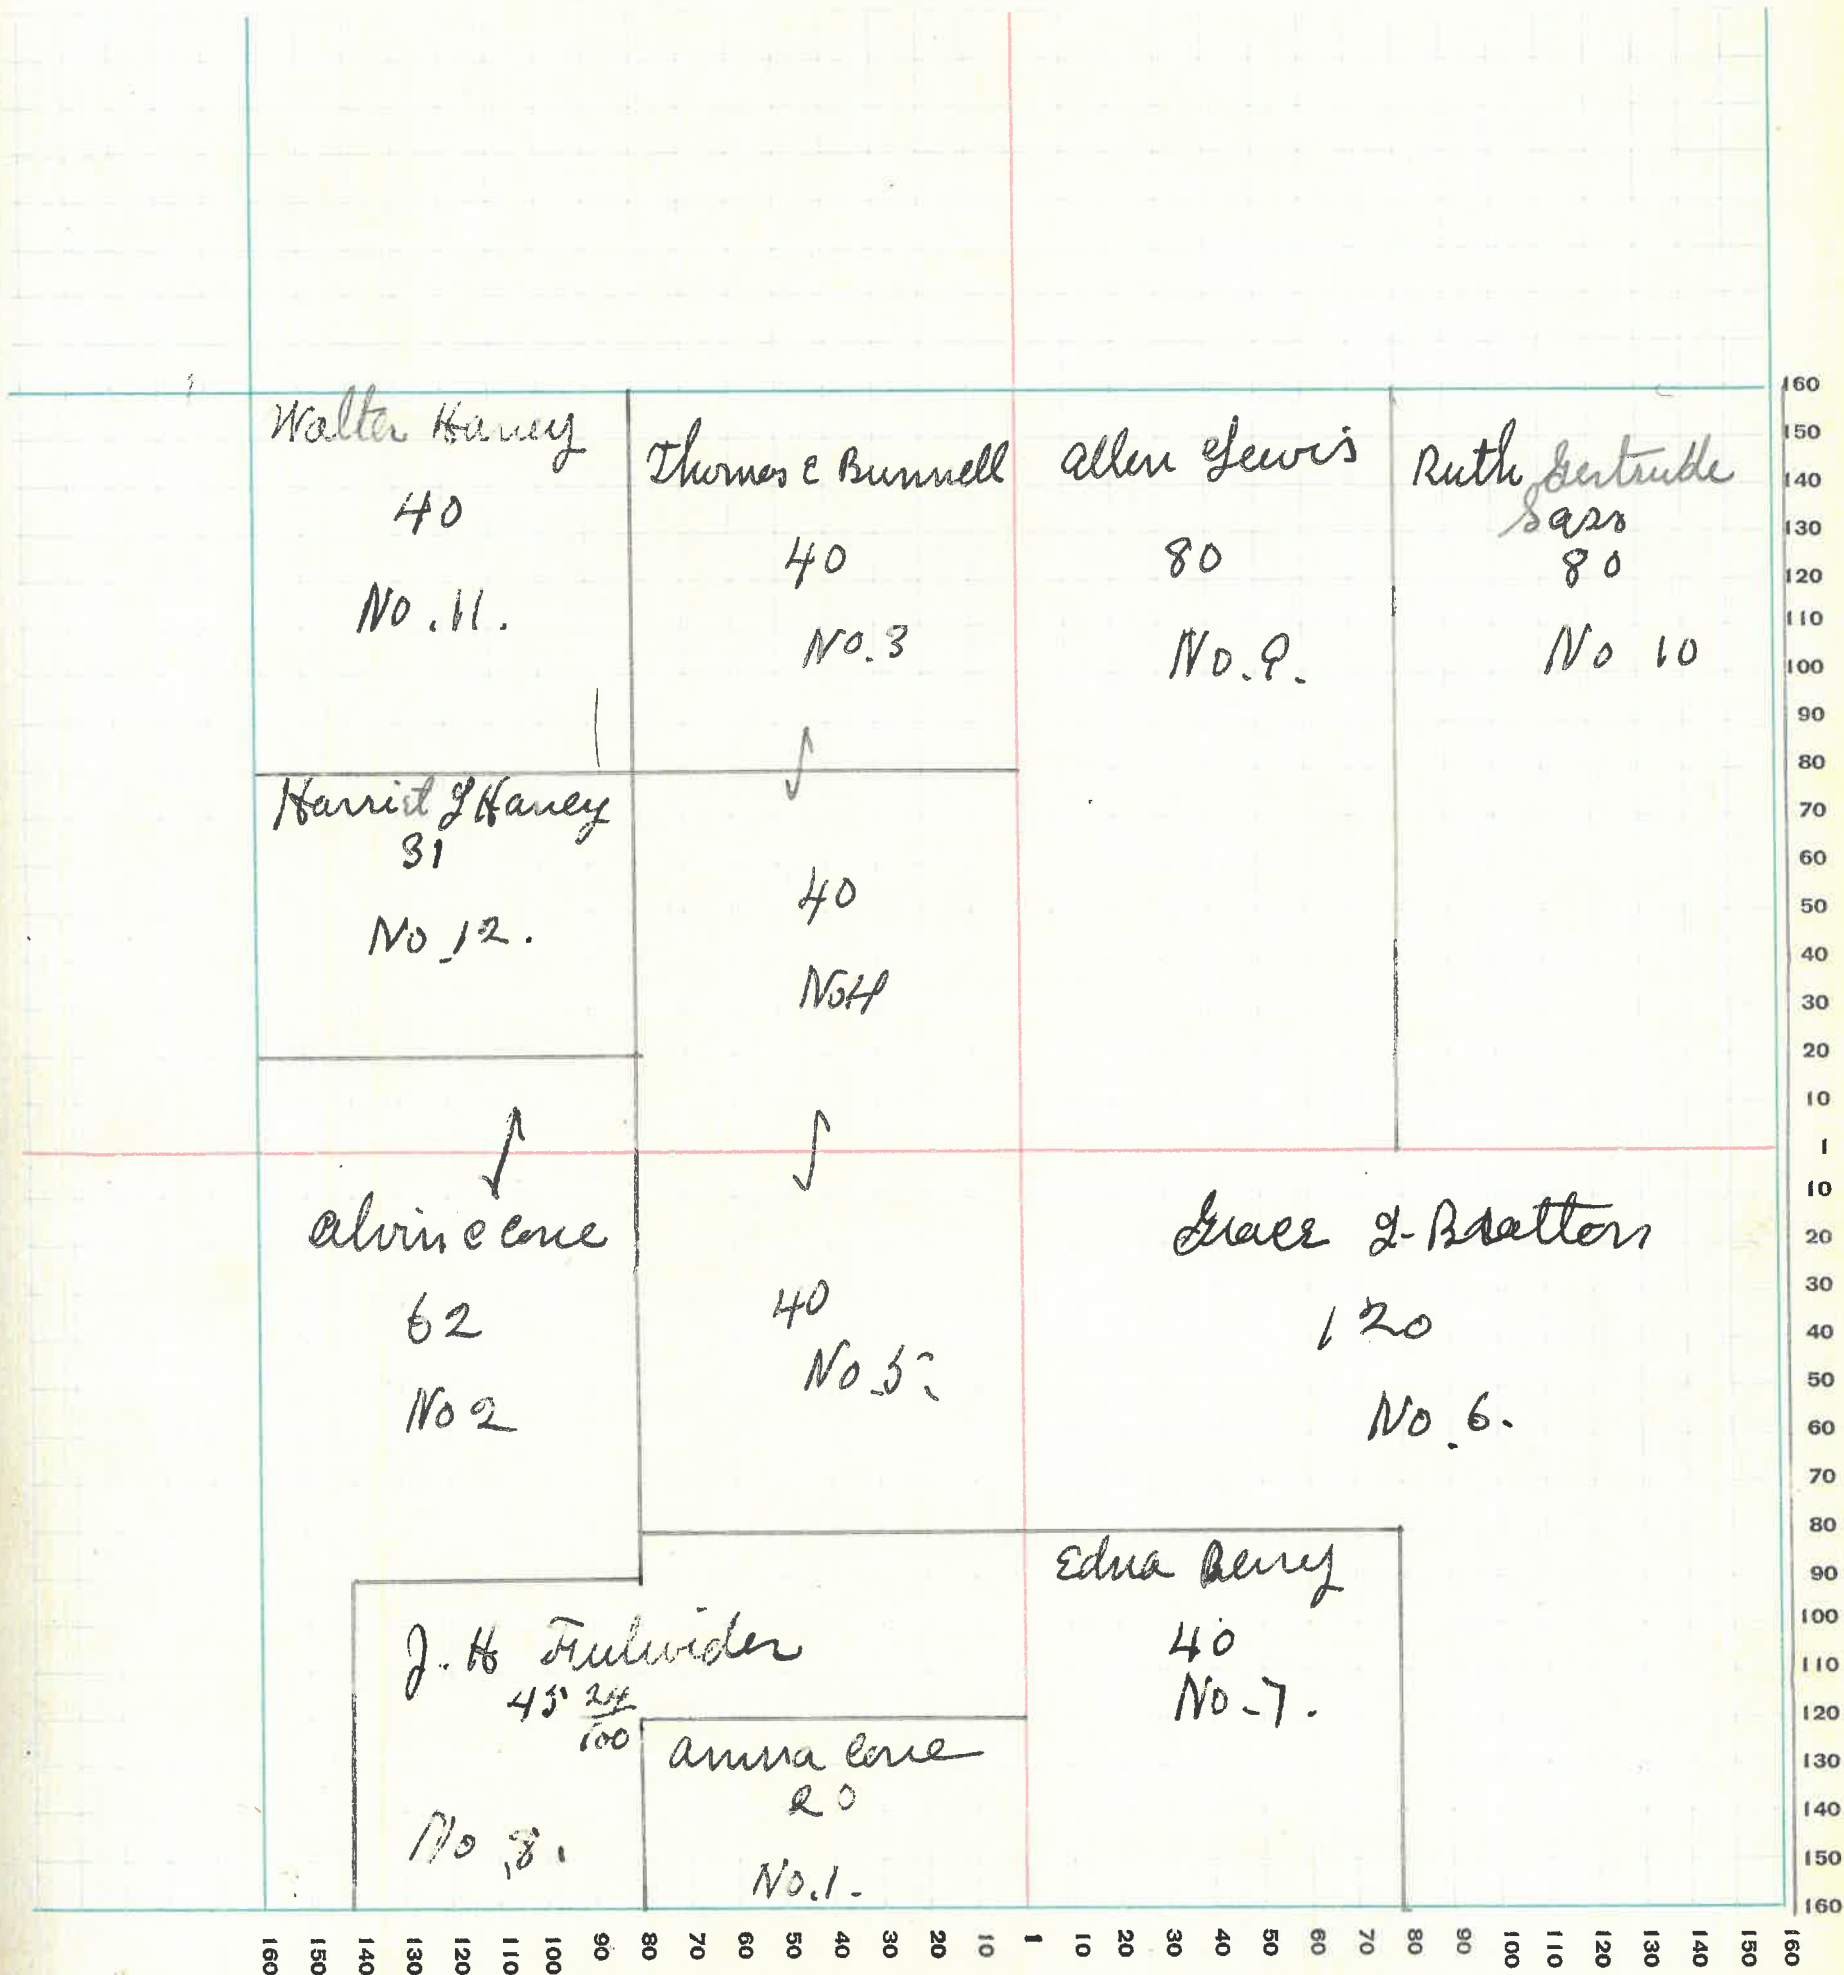 Walter Haney
40
No. 11.
Thomas C Bunnell
40
No. 3
Allen Lewis
80
No. 9.
Ruth Gertrude
Sass
80
No 10
Harriet L Haney
31
No. 12.
40
No 4
Alvin C Cone
62
No 2
40
No. 5.
Grace L. Bratton
120
No. 6.
Edna Berry
40
No. 7.
J. H Fulwider
45 24/100
No. 8.
Anna Cone
20
No. 1.
160
150
140
130
120
110
100
90
80
70
60
50
40
30
20
10
1
10
20
30
40
50
60
70
80
90
100
110
120
130
140
150
160
160 150 140 120 110 100 90 80 70 60 50 40 30 20 10 1 10 20 30 40 50 60 70 80 90 100 110 120 130 140 150 160